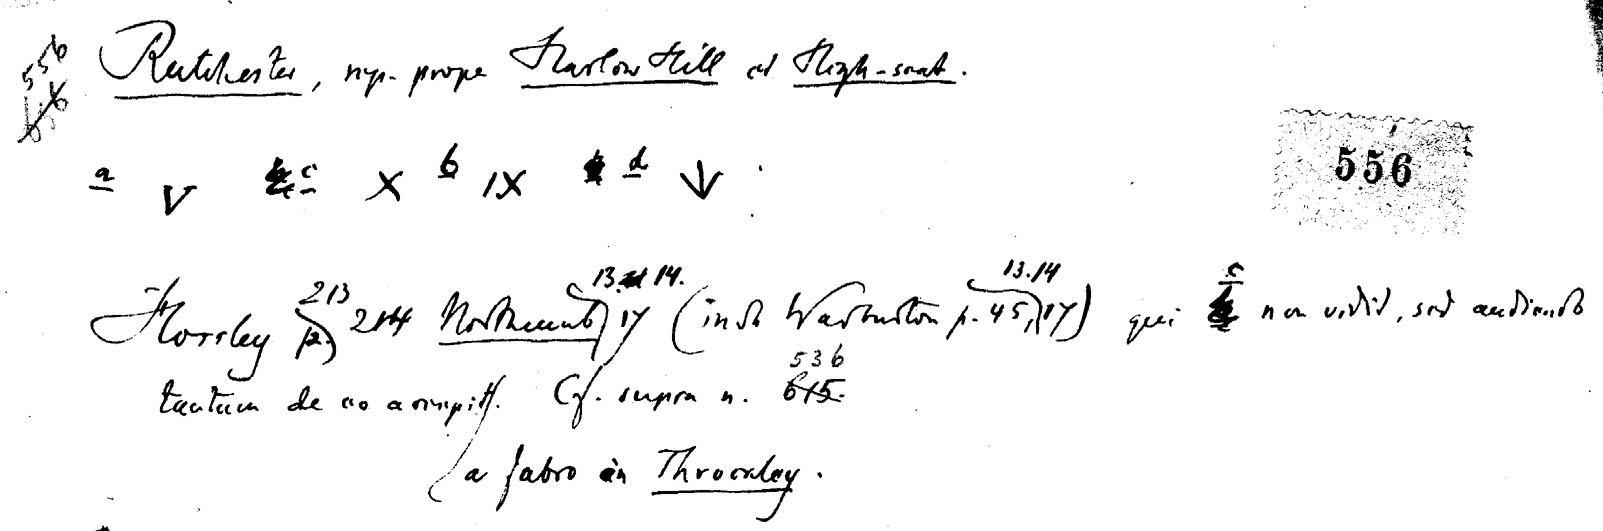 556
Rutchester, rep. prope Harlow Hill et High-seat.
a V c X b IX d ↓
556
13. 14. 13.14 c
213
Horsley p. 214 Northumb 17 (inde Warburton p. 45, 17) qui non vidit, sed audiendo
536
tantum de eo accepit. Cf. supra n. 615.
a fabro in Throckley.